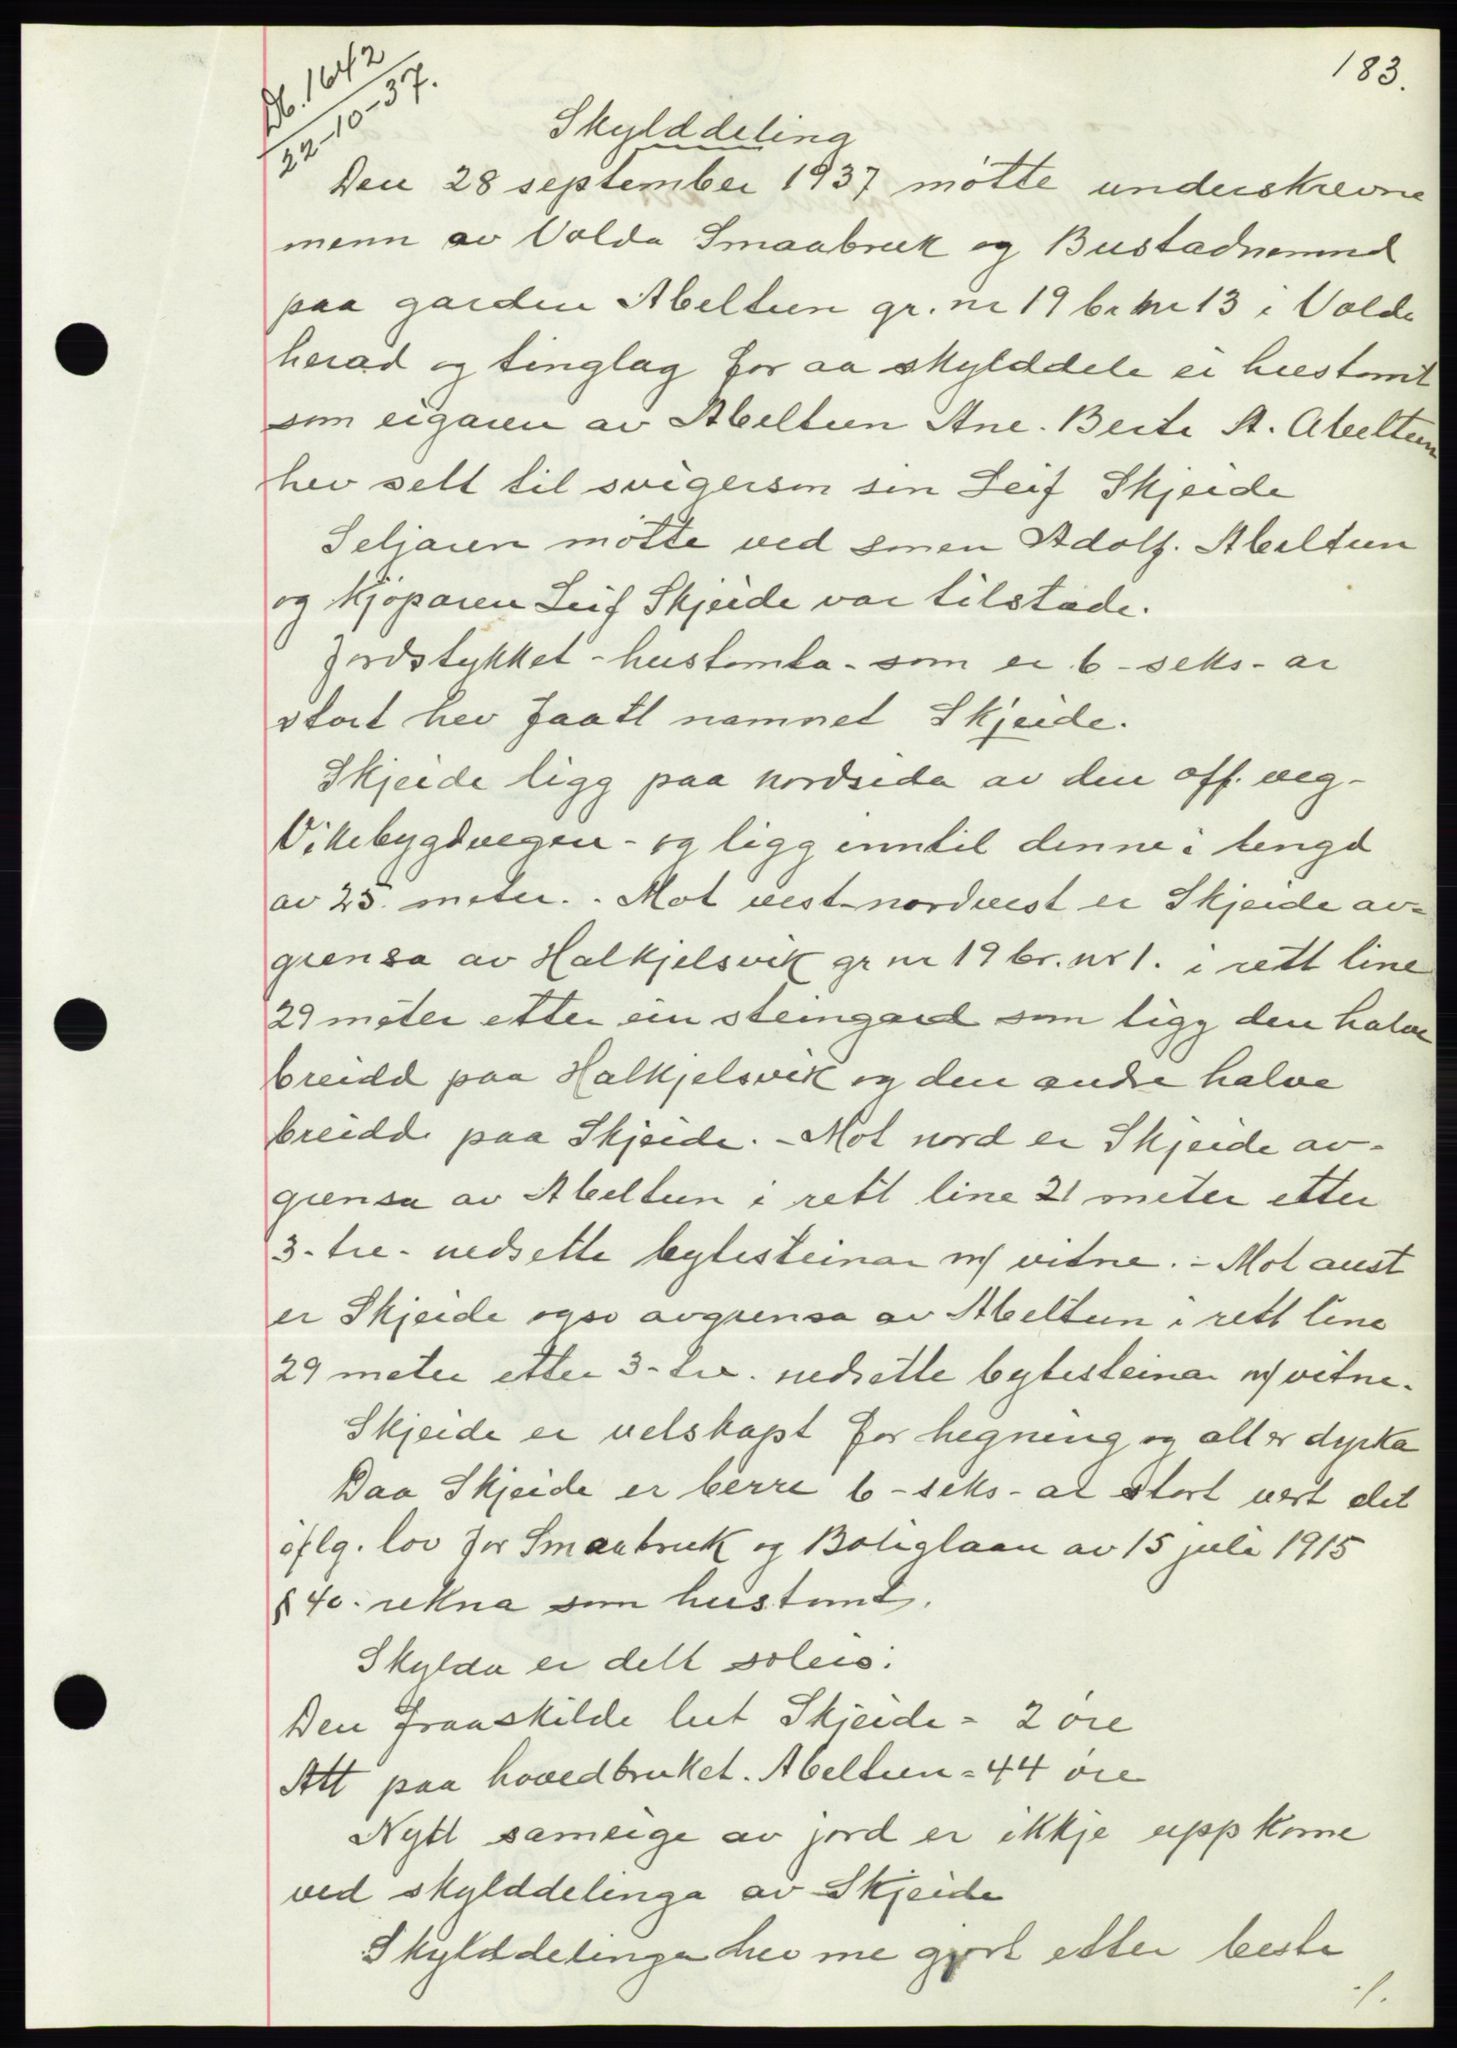 183.
Db. 1642
22-10-37.
Skylddeling
Den 28 september 1937 møtte underskrevne
menn av Volda Smaabruk og Bustadnemnd
paa garden Abeltun gr. nr 19 br. nr 13 i Volda
herad og tinglag for aa skylddele ei hustomt
som eigaren av Abeltun Ane. Berte A. Abeltun
hev selt til svigerson sin Leif Skjeide
Seljaren møtte ved sonen Adolf. Abeltun
og kjøparen Leif Skjeide var tilstade.
Jordstykket - hustomta - som er 6 - seks - ar
stort hev faatt namnet Skjeide.
Skjeide ligg paa nordsida av den off. veg -
Vikebygdvegen - og ligg inntil denne i lengd
av 25 meter. - Mot vest-nordvest er Skjeide av-
grensa av Halkjelsvik gr nr 19 br. nr 1. i rett line
29 meter etter ein steingard som ligg den halve
breidd paa Halkjelsvik og den andre halve
breidd paa Skjeide. - Mot nord er Skjeide av-
grensa av Abeltun i rett line 21 meter etter
3 - tre - nedsette bytesteinar m/ vitne. - Mot aust
er Skjeide ogso avgrensa av Abeltun i rett line
29 meter etter 3 - tre - nedsette bytesteinar m/ vitne.
Skjeide er velskapt for hegning og alt er dyrka
Daa Skjeide er berre 6 - seks - ar stort vert det
iflg. lov for Smaabruk og Boliglaan av 15 juli 1915
§ 40. rekna som hustomt.
Skylda er delt soleis:
Den fraaskilde lut Skjeide = 2 øre
Att paa hovedbruket. Abeltun = 44 øre
Nytt sameige av jord er ikkje uppkome
ved skylddelinga av Skjeide
Skylddelinga hev me gjort etter beste
./.